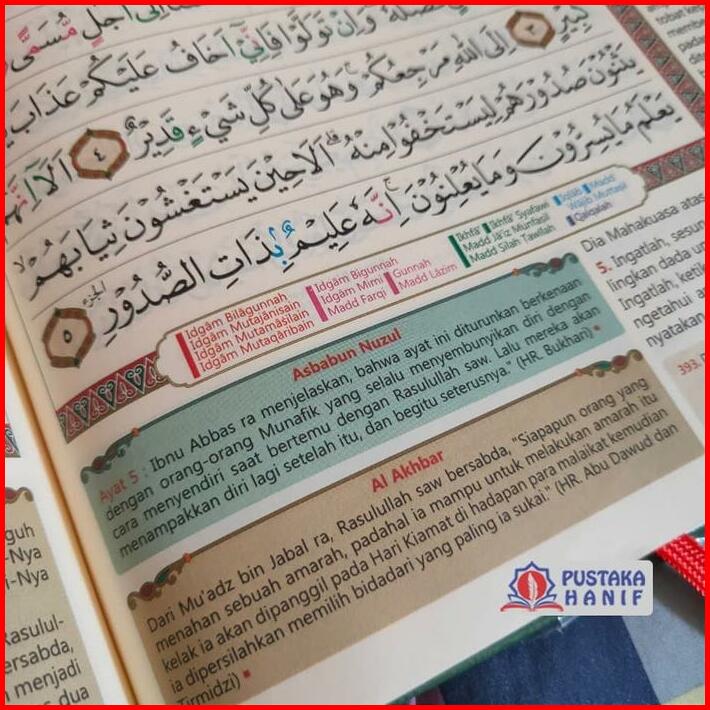 إِلَى أَجَلٍ مُسَمًّى
وَإِنْ تَوَلَّوْا فَإِنِّيْٓ أَخَافُ عَلَيْكُمْ عَذَابَ
كَبِيْرٍ ٣ إِلَى اللّٰهِ مَرْجِعُكُمْ ۚ وَهُوَ عَلٰى كُلِّ شَيْءٍ قَدِيْرٌ ٤ أَلَآ إِنَّهُمْ
يَثْنُوْنَ صُدُوْرَهُمْ لِيَسْتَخْفُوْا مِنْهُ ۗ أَلَا حِيْنَ يَسْتَغْشُوْنَ ثِيَابَهُمْ ۙ
يَعْلَمُ مَا يُسِرُّوْنَ وَمَا يُعْلِنُوْنَ ۚ إِنَّهٗ عَلِيْمٌۢ بِذَاتِ الصُّدُوْرِ ٥
الجزء
Idgām Bilāgunnah
Idgām Mutajānisain
Idgām Mutamāṡilain
Idgām Mutaqāribain
Idgām Bigunnah
Idgām Mimi
Madd Farqi
Gunnah
Madd Lāzim
Ikhfā'
Ikhfā' Syafawi
Madd Jā'iz Munfaṣil
Madd Ṣilah Ṭawīlah
Iqlāb
Madd
Wājib Muttaṣil
Qalqalah
Asbabun Nuzul
Ayat 5 : Ibnu Abbas ra menjelaskan, bahwa ayat ini diturunkan berkenaan
dengan orang-orang Munafik yang selalu menyembunyikan diri dengan
cara menyendiri saat bertemu dengan Rasulullah saw. Lalu mereka akan
menampakkan diri lagi setelah itu, dan begitu seterusnya." (HR. Bukhari)
Al Akhbar
Dari Mu'adz bin Jabal ra, Rasulullah saw bersabda, "Siapapun orang yang
menahan sebuah amarah, padahal ia mampu untuk melakukan amarah itu
kelak ia akan dipanggil pada Hari Kiamat di hadapan para malaikat kemudian
ia dipersilahkan memilih bidadari yang paling ia sukai." (HR. Abu Dawud dan
Tirmidzi)
Dia Mahakuasa atas
5. Ingatlah, sesun
lingkan dada un
Ingatlah, ketik
ngetahui a
nyatakan
393.
tobat kep
member
pada
di
guh
-Nya
i-Nya
Rasulul-
ersabda,
menjadi
s dua
PUSTAKA
HANIF